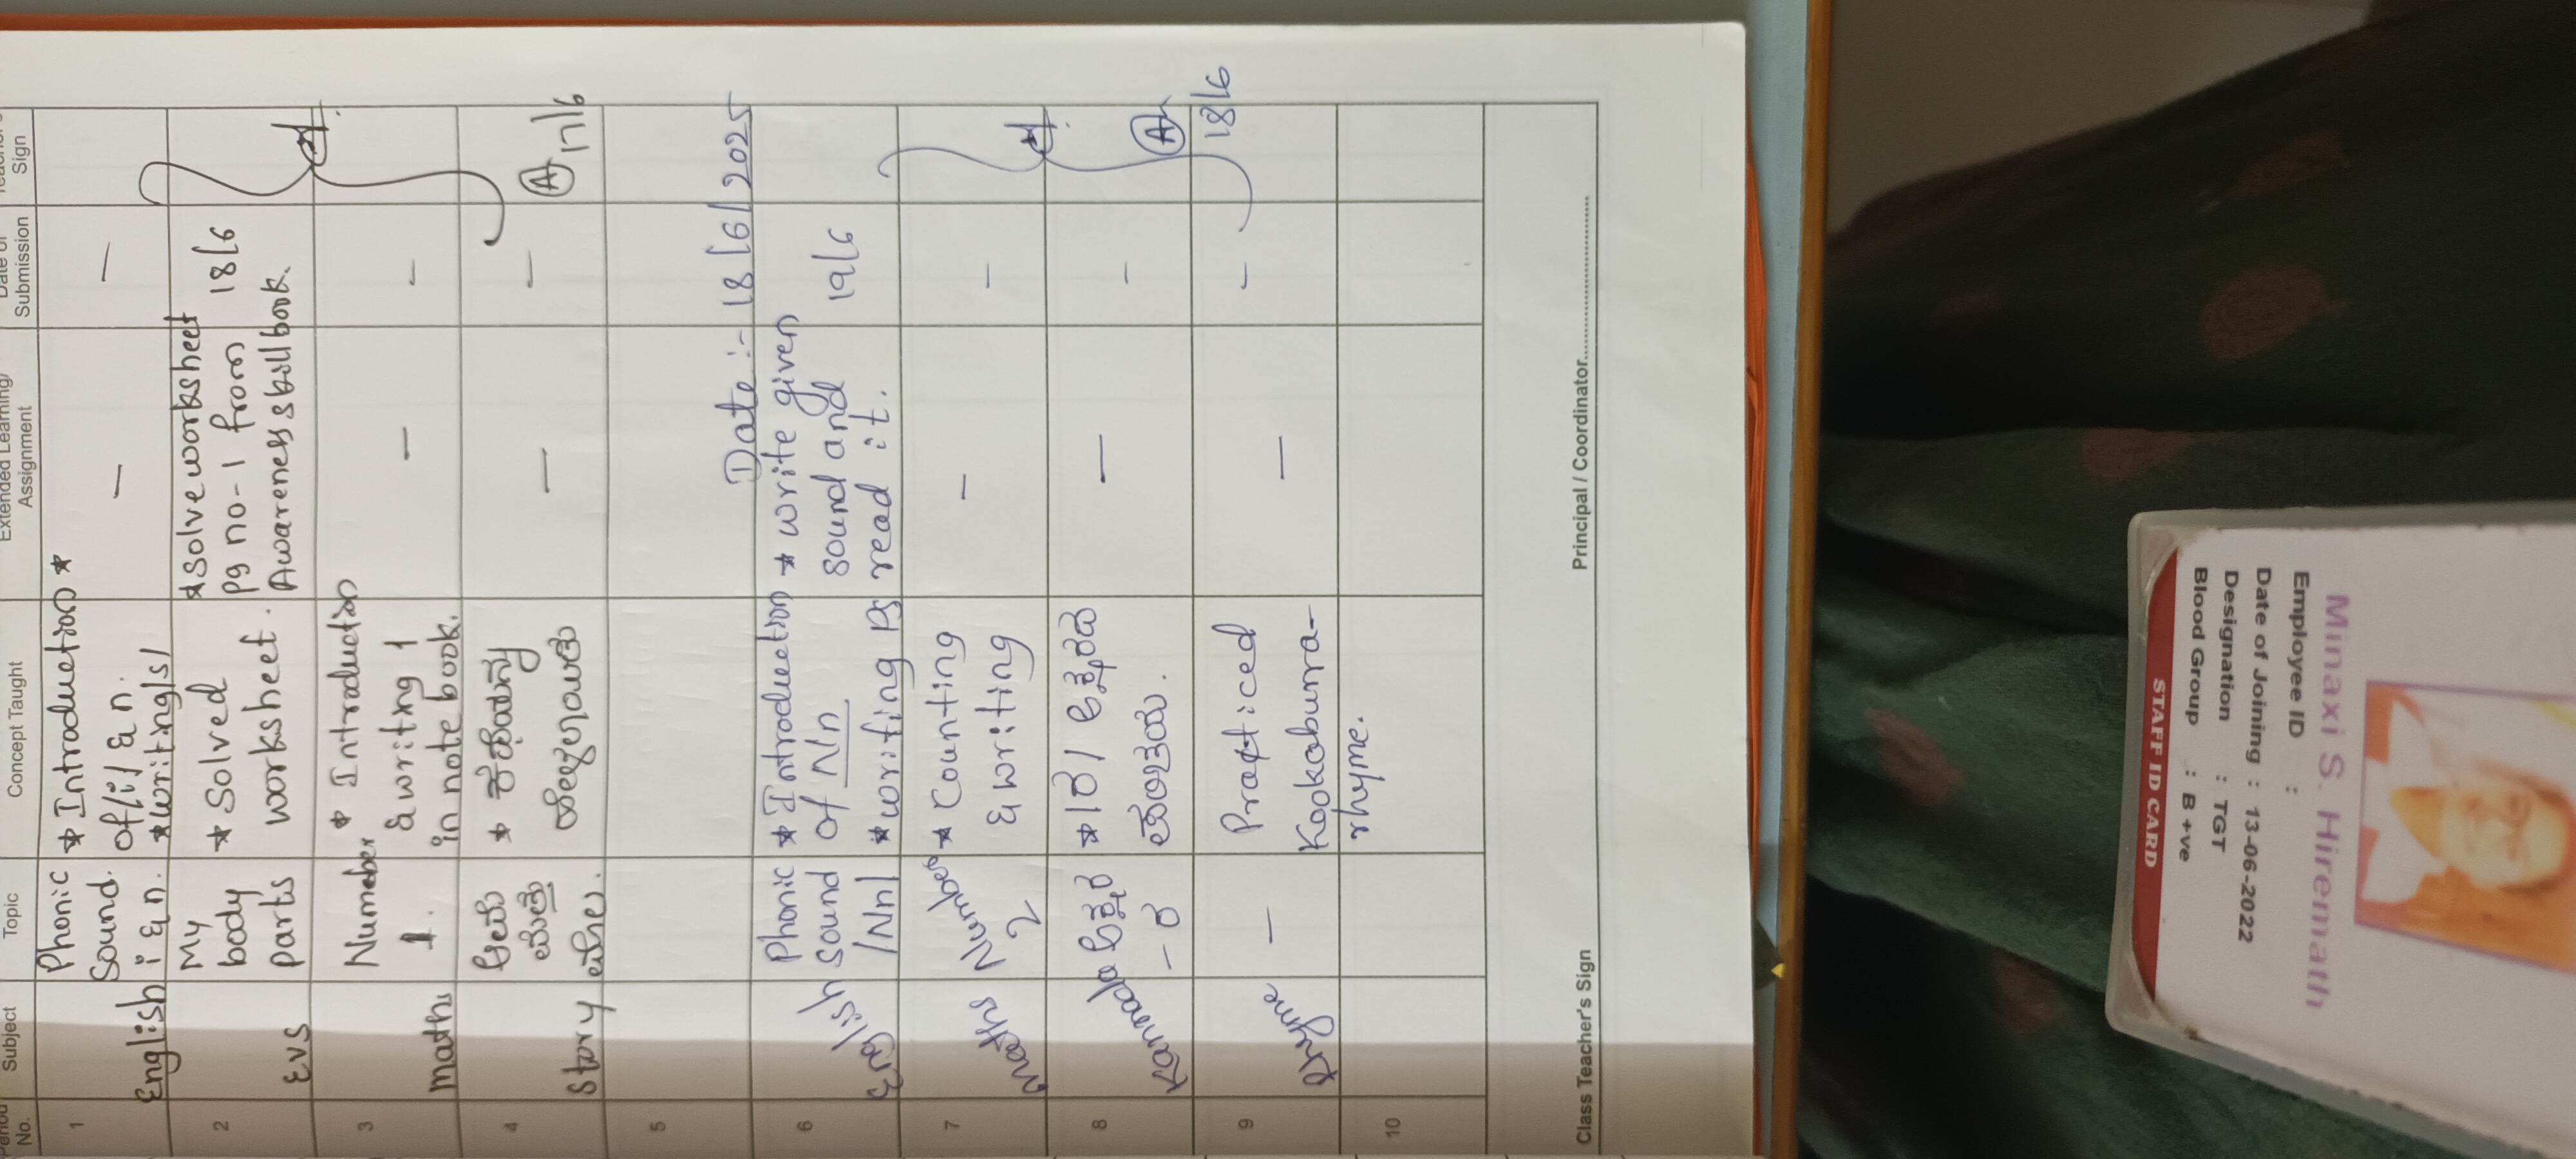 Period No. Subject Topic Concept Taught Extended Learning/ Assignment Date of Submission Teacher's Sign
1
English
Phonic
Sound.
i & n.
* Introduction *
of/i/ & n.
* writing/s/
—
—
2
EVS
My
body
parts
* Solved
worksheet.
* solve worksheet
pg no-1 from
Awareness skill book.
18/6
3
maths
Number
1.
* Introduction
& writing 1
in note book.
—
—
4
Story
ಆಮೆ
ಮತ್ತು
ಮೊಲ.
* ಕಥೆಯನ್ನು
ಹೇಳಲಾಯಿತು
—
—
A 17/6
5
Date :- 18/6/2025
6
English
Phonic
sound
/Nn/
* Introduction
of Nn
* writing Pg
* write given
sound and
read it.
19/6
7
Maths
Number
2
* Counting
& writing
—
—
8
Kannada
ಅಕ್ಷರ
- ರ
* /ರ/ ಅಕ್ಷರದ
ಪರಿಚಯ.
—
—
A
18/6
9
Rhyme
—
Practiced
Kookabunra-
rhyme.
—
—
10
Class Teacher's Sign
Principal / Coordinator
STAFF ID CARD
Minaxi S. Hiremath
Employee ID :
Date of Joining : 13-06-2022
Designation : TGT
Blood Group : B +ve